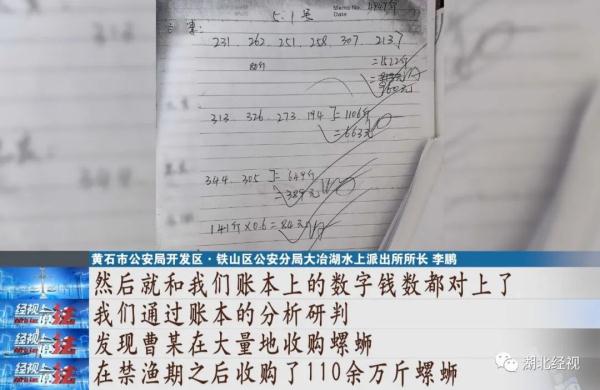 Memo No.
Date
5.1号
231. 262. 251. 258. 307. 213.
=1522斤
313. 326. 273. 194 ]=1106斤
=663元
344. 305 ]=649斤
=389元
141斤×0.6=84元
黄石市公安局开发区·铁山区公安分局大冶湖水上派出所所长 李鹏
然后就和我们账本上的数字钱数都对上了
我们通过账本的分析研判
发现曹某在大量地收购螺蛳
在禁渔期之后收购了110余万斤螺蛳
经视
湖北经视